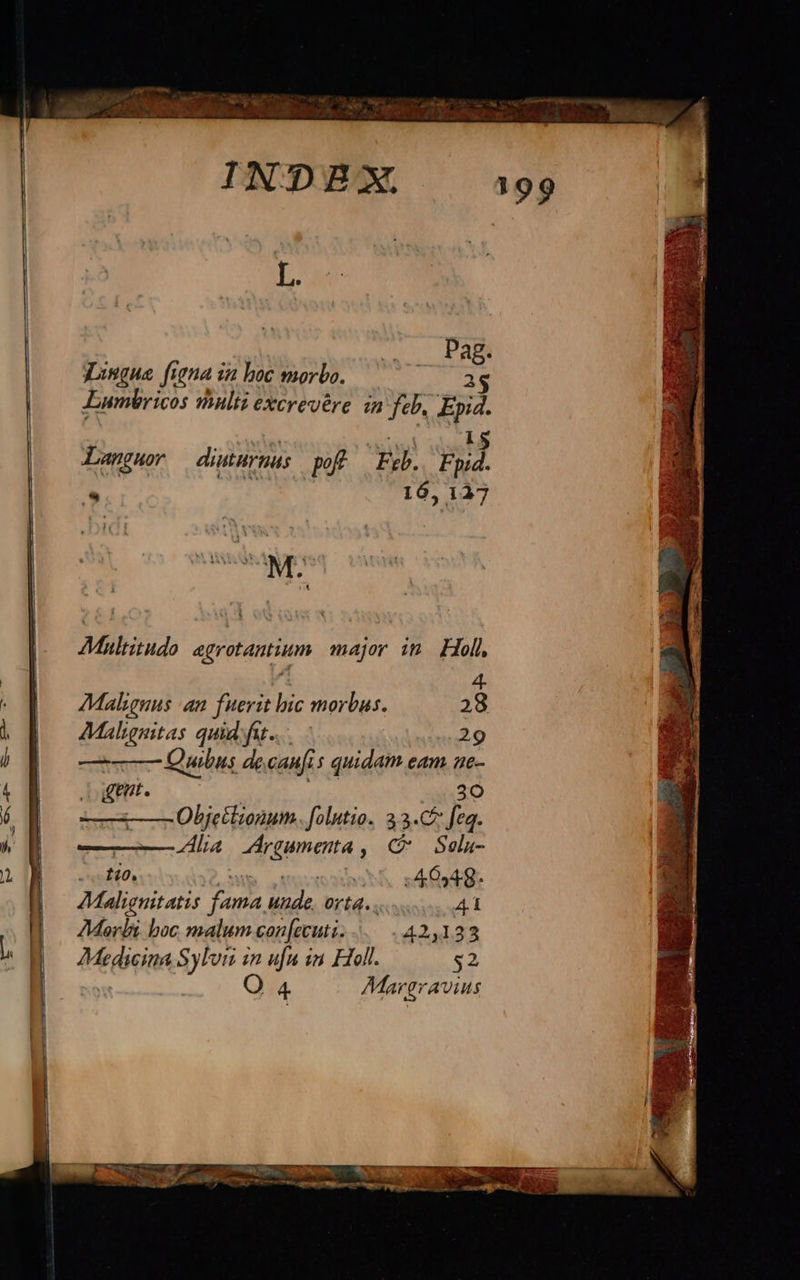 INDEX. 199
L.
Pag.
Linguæ ſigna in hoc morbo. 25
Lumbricos multi excrevêre in feb. Epid.
15
Languor diuturnus poſt Feb. Epid.
16, 127
M.
Multitudo ægrotantium major in Holl.
4
Malignus an fuerit hic morbus. 28
Malignitas quid ſit. 29
—— Quibus de cauſis quidam eam ne-
gent. 30
—— Objectionum ſolutio. 33. & ſeq.
—— Alia Argumenta, & Solu-
tio. 40,48.
Malignitatis fama unde orta. 41
Morbi hoc malum conſecuti. 42,133
Medicina Sylvii in uſu in Holl. 52
O 4 Margravius